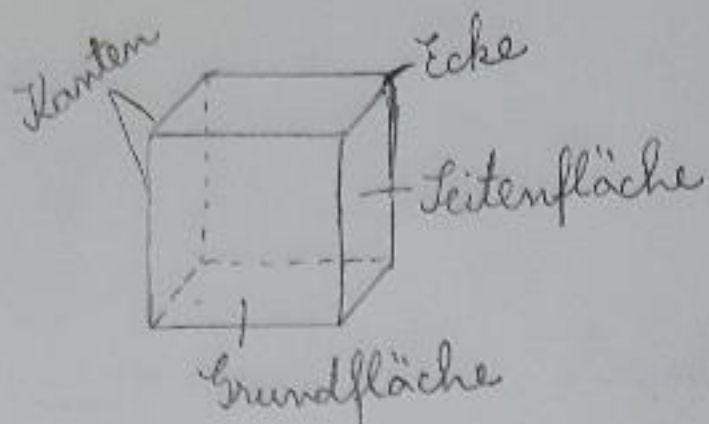 Kanten
Ecke
Seitenfläche
Grundfläche